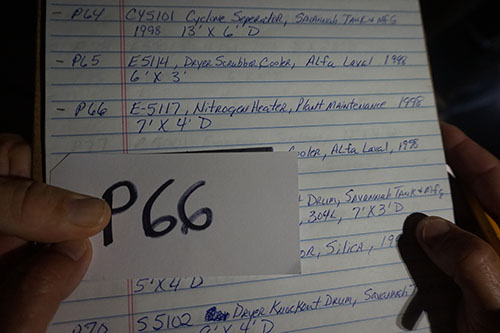 - P64 CY5101 Cyclone Seperator, Savannah Tank & Mfg
1998 13' X 6' D
- P65 E5114, Dryer Scrubber Cooler, Alfa Laval 1998
6' X 3'
- P66 E-5117, Nitrogen Heater, Plant Maintenance 1998
7' X 4' D
Cooler, Alfa Laval, 1998
P66
Drum, Savannah Tank & Mfg
304L, 7' X 3' D
Silica, 199
5' X 4' D
P70 S5102 Dryer Knockout Drum, Savannah
9' X 4' D